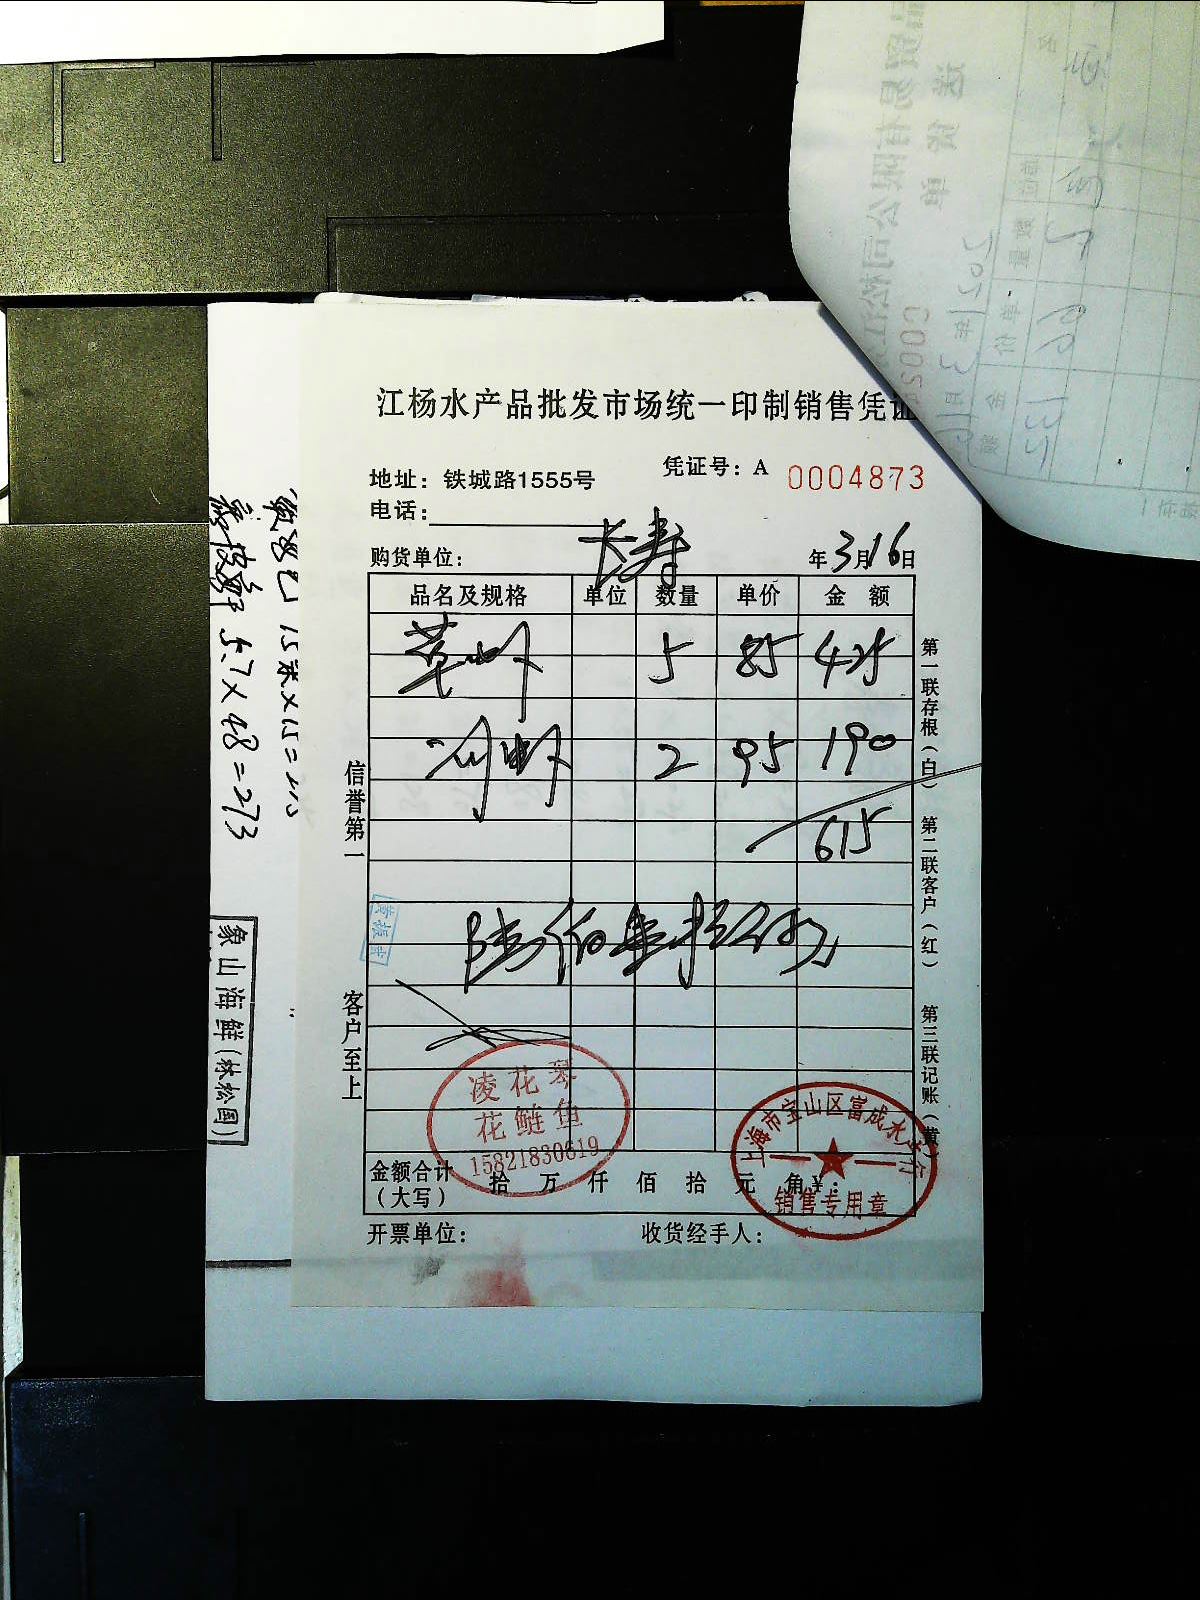 江杨水产品批发市场统一印制销售凭证
地址：铁城路1555号
凭证号：A 0004873
电话：
购货单位： 长寿
年3月16日
品名及规格 单位 数量 单价 金额
草虾 5 85 425
河虾 2 95 190
615
陆佰壹拾伍元
信誉第一
客户至上
第一联存根（白） 第二联客户（红） 第三联记账（黄）
凌花琴
花鲢鱼
15821830619
上海市宝山区富成水产行
销售专用章
金额合计（大写） 拾 万 仟 佰 拾 元 角 ¥：
开票单位：
收货经手人：
5.7×48=273
象山海鲜(林松国)